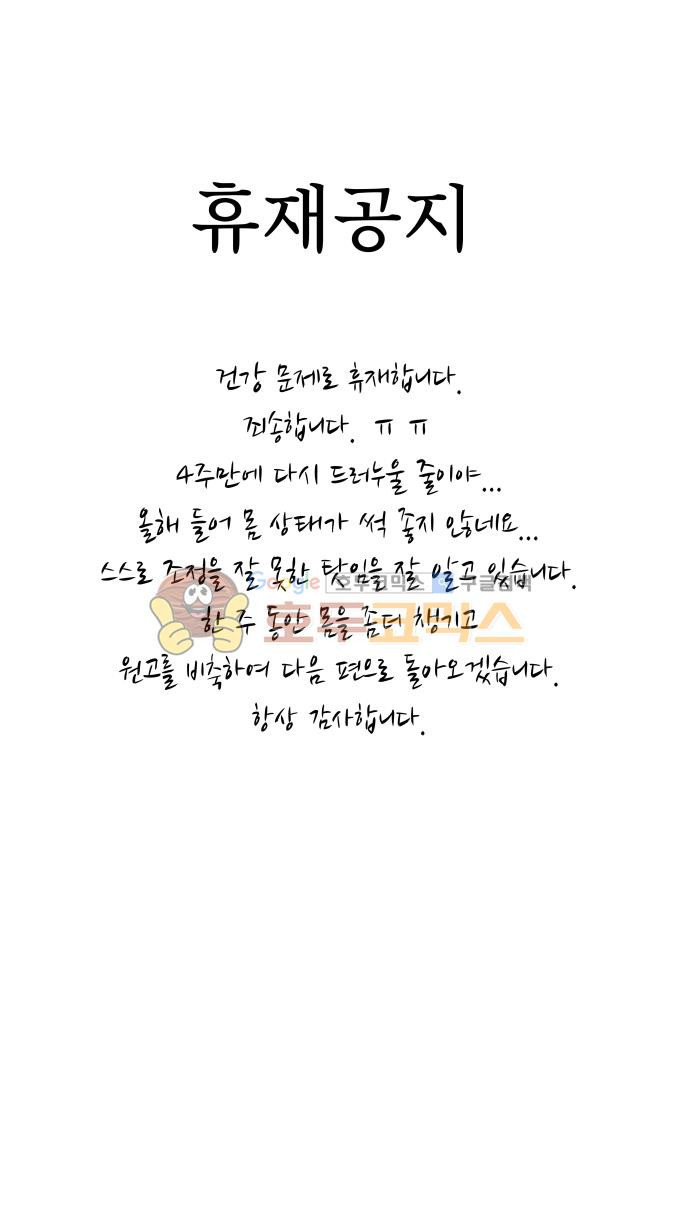 휴재공지
건강 문제로 휴재합니다.
죄송합니다. ㅠ ㅠ
4주만에 다시 드러누울 줄이야...
올해 들어 몸 상태가 썩 좋지 않네요...
스스로 조정을 잘 못한 탓임을 잘 알고 있습니다.
Google 호두코믹스 구글검색
한 주 동안 몸을 좀더 챙기고
호두코믹스
원고를 비축하여 다음 편으로 돌아오겠습니다.
항상 감사합니다.